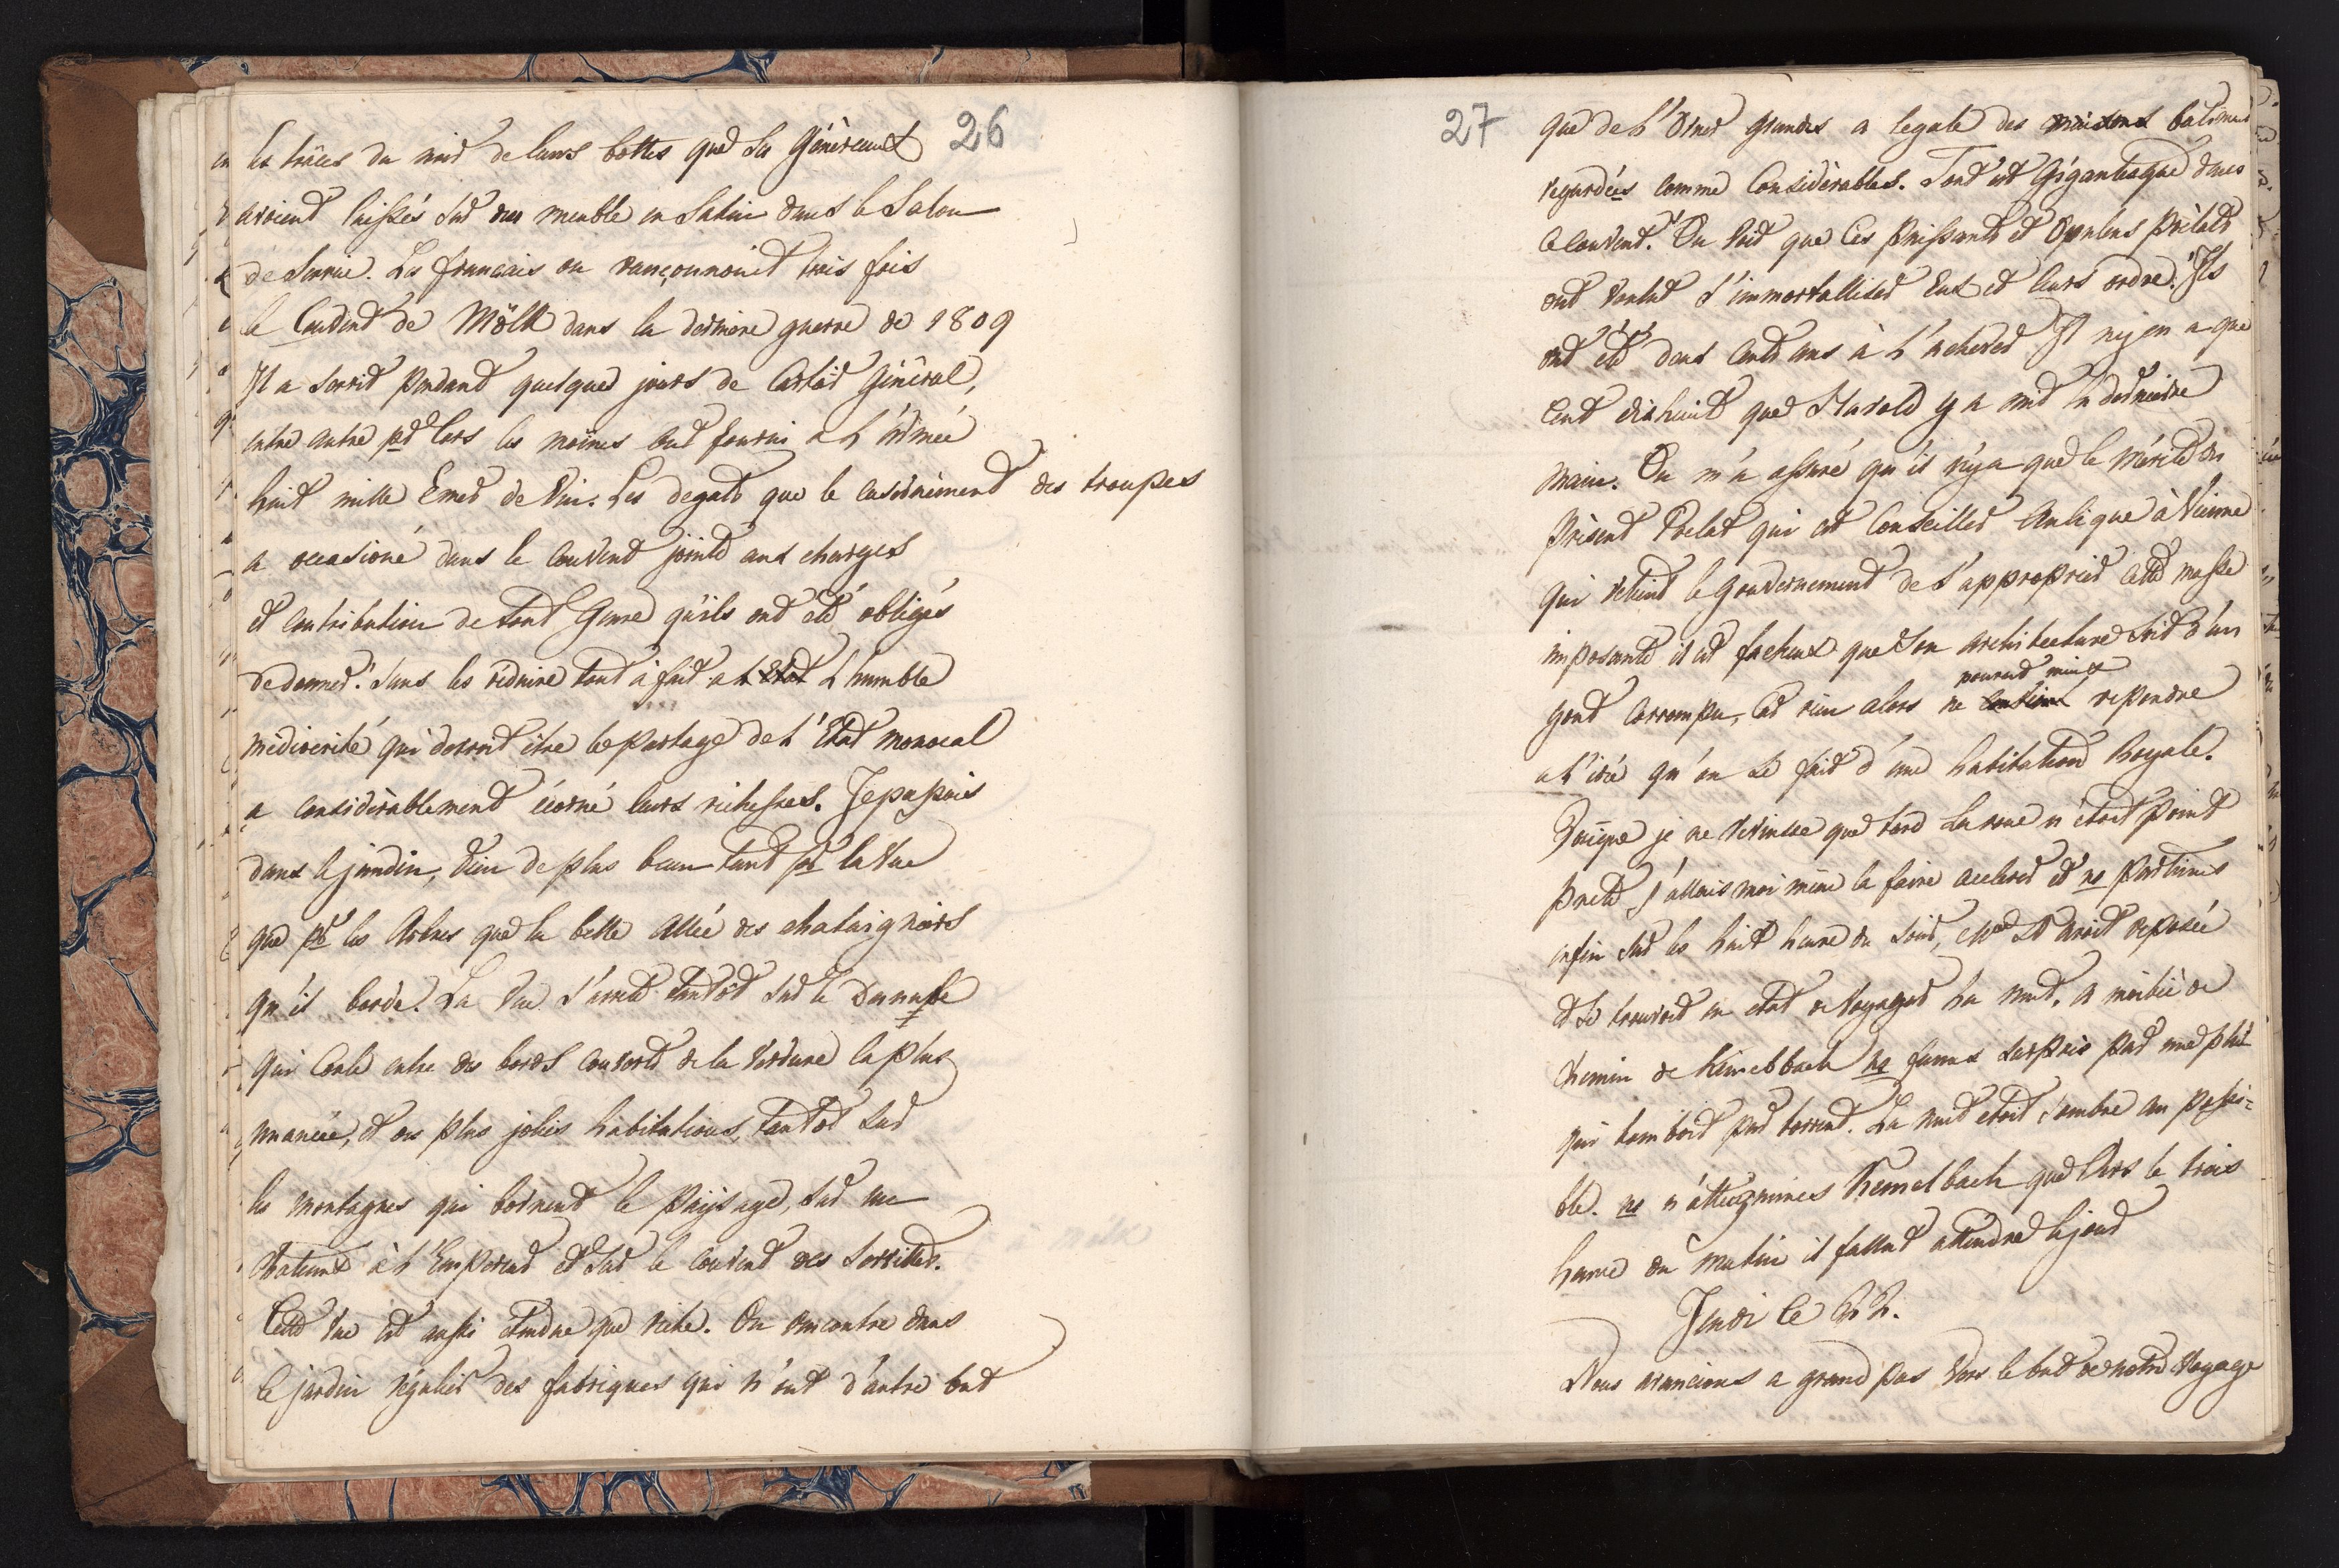 26
les traces du noir de leurs bottes que les Généreaux
avoient laissés sur des meuble en Satin dans le Salon
de Service. Les français on rançonnoient trois fois
le Couvent de Mölk dans la derniere guerre de 1809
Il a servit pendant quesques jours de Cartier Général,
entre autre pr lors les moines ont fourni a l'Armée
huit mille Emer de Vin. Les degats que le casernement des troupes
a occasioné dans le Couvent joints aux charges
et Contribution de tout Genre qu'ils ont été obligés
de donner. Sans les reduire tout à fait a l'Etat L humble
médiocrité qui devroit être le partage de l'Etat monacal
a considérablement écorné leurs richesses. Je passois
dans le jardin, Rien de plus beau tant pr la Vue
que pr les Arbres que la belle Allée des chataigniers
qu'il borde. La Vue s'arrete tantôt sur le Danube
qui Coule entre des bords couverts de la Verdure la plus
nuancée, et des plus jolies habitations, tantôt sur
les montagnes qui bornent le Paysage, sur un
Chateau à l'Empereur et sur le Couvent des Servites.
Cette Vue est aussi etendue que riche. On rencontre dans
le jardin régulier des fabriques qui n'ont d'autre but
27
que de l'Orner grandes a legale des maisons batimens
regardées comme Considérables. Tout est Gigantesque dans
ce Couvent. On Voit que Ces puissants et Opulens Prélats
ont Voulut s'immortalliser Eux et leurs ordre. Ils
ont été deux Cents ans à l'achever Il ny en a que
Cent dixhuit que Harold y a mit la derniere
main. On m'a assuré qu'il n'y a que le Mérite du
présent Prelat qui est Conseiller Aulique à Vienne
qui retient le Gouvernement de s'approprier Cette masse
imposante il est facheux que Son architecture soit d'un
gout Corrompu, Car rien alors ne Convient pouroit mieux repondre
a l'idée qu'on se fait d'une habitation Royale.
Quoique je ne revinsse que tard La roue n'étoit point
prete J'allais moi même la faire accelerer et ns partimes
enfin sur les huit heure du soir, etoit reposée
et Se trouvoit en etat de Voyager La nuit. A moitié de
Chemin de Kemelbach ns fumes surpris par une pluie
qui tomboit par torrent. La nuit etoit Sombre au possi=
ble. ns n'atteignimes Kemelbach que Vers le trois
heure du matin il fallut attendre le jour
Jeudi le 22.
Nous avancions a grand pas Vers le but de notre Voyage